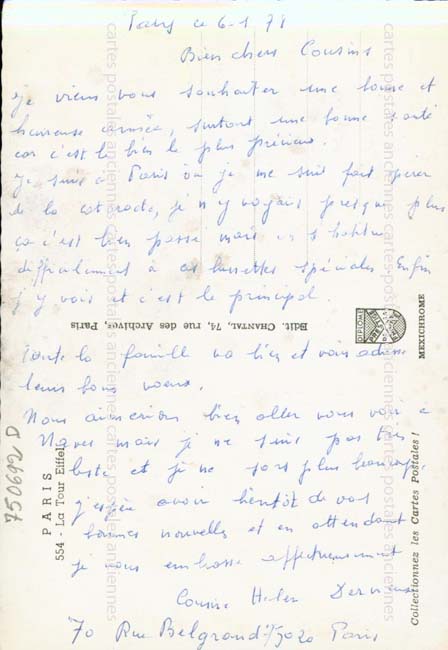 Paris ce 6-1 78
Bien chers Cousins
je viens vous souhaiter une bonne et
heureuse année, surtout une bonne santé
car c'est le bien le plus précieux.
Je suis à Paris où je me suis fait opérer
de la cataracte, je n'y voyais presque plus
ça c'est bien passé mais on s'habitue
difficilement à ces lunettes spéciales. Enfin
j'y vois et c'est le principal.
Toute la famille va bien et vous adresse
leurs bons voeux.
Nous aimerions bien aller vous voir à
mais je ne suis pas très
leste et je ne sors plus beaucoup.
j'espère avoir bientôt de vos
bonnes nouvelles et en attendant
je vous embrasse affectueusement
Cousine Helen
70 Rue Belgrand 75020 Paris
Edit. CHANTAL, 74, rue des Archives, Paris
MEXICHROME
PARIS
554 - La Tour Eiffel
Collectionnez les Cartes Postales !
750692 D
cartes-postales-anciennes
cartes-postales-anciennes